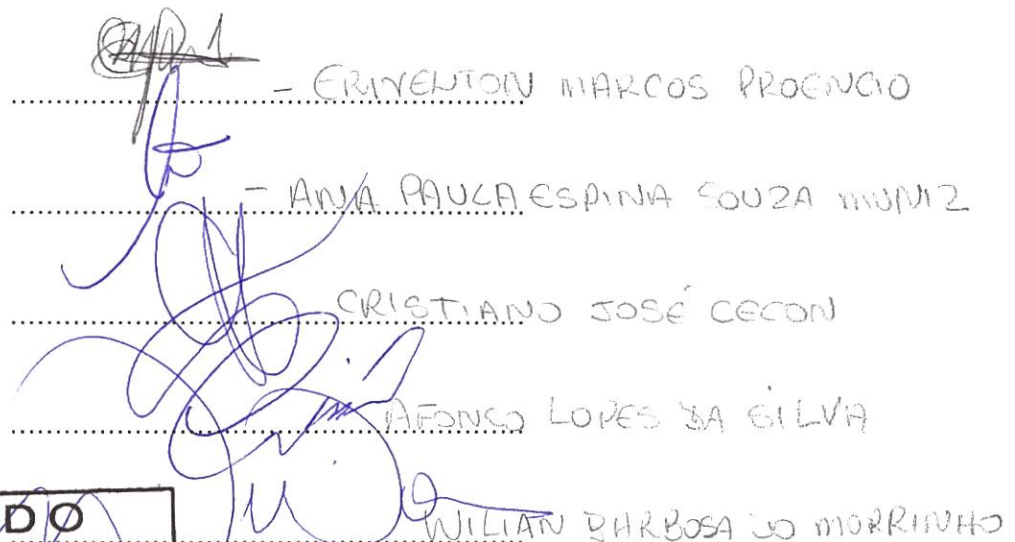 - ERIVENTON MARCOS PROENCIO
- ANA PAULA ESPINA SOUZA MUNIZ
CRISTIANO JOSÉ CECON
AFONSO LOPES DA SILVA
WILIAN BARBOSA DO MORRINHO
DO